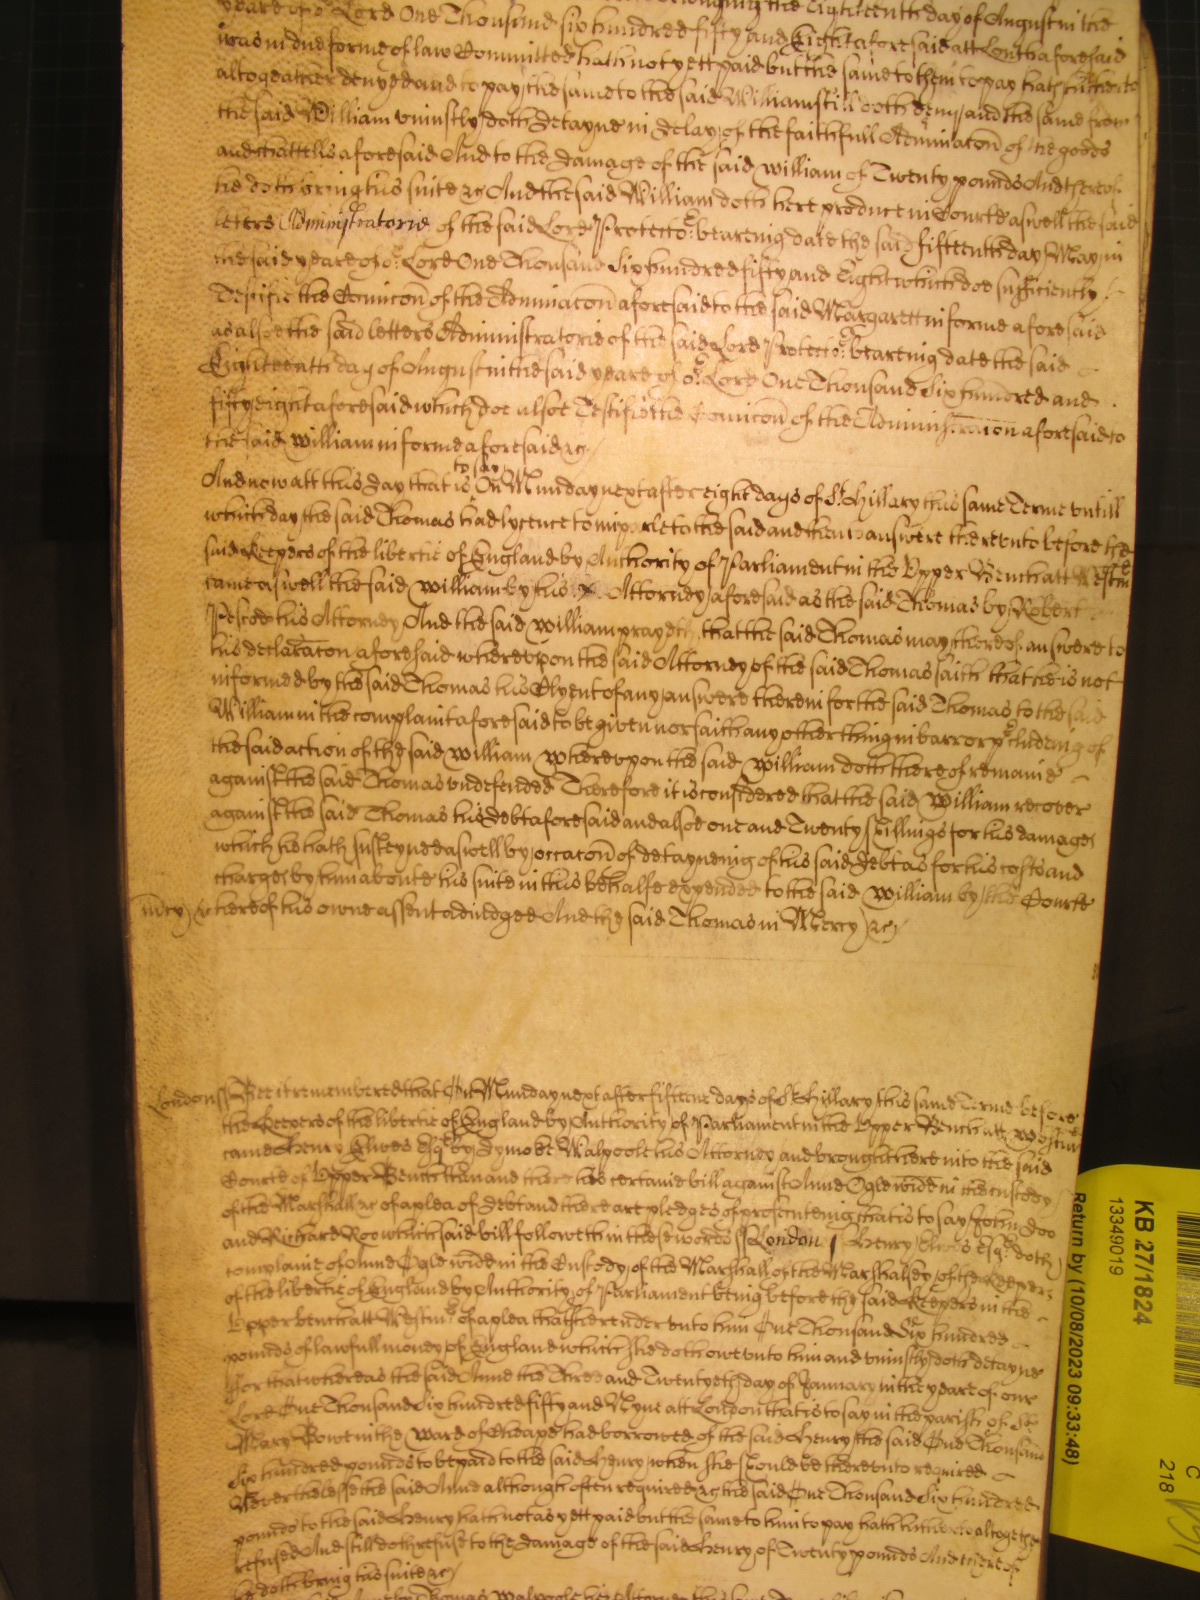 yeare of or Lord One Thousand six hundred fifty and Eight aforesaid att London aforesaid
was in due forme of law Committed hath not yett paid but the same to them to pay hath hitherto
altogeather denyed and to pay the same to the said William still doth deny and the same from
the said William uniustly doth detayne in delay of the faithfull Adminiacon of the goods
and chattells aforesaid And to the damage of the said William of Twenty pounds And thereof
he doth bring his suite &c And the said William doth here produce in Courte aswell the said
letters Administratorie of the said Lord Protector bearenig date the said fifteenth day of May in
the said yeare of or Lord One Thousand Six hundred fifty and Eight which doe sufficiently
Testifie the Comicon of the Adminiacon aforesaid to the said Margarett in forme aforesaid
as alsoe the said letters Administratorie of the said Lord Protector bearenig date the said
Eighteenth day of August in the said yeare of or Lord One Thousand Six hundred and
fifty eight aforesaid which doe alsoe Testifie the Comicon of the Administracion aforesaid to
the said William in forme aforesaid &c
And now att this day that is to say On Munday next after eight days of St Hillary this same Terme untill
which day the said Thomas had lycence to imparle to the said and then to answere thereunto before the
said Keepers of the libertie of England by Authority of Parliament in the Upper Bench att Westm
came aswell the said William by his Attorney aforesaid as the said Thomas by Robert
Pescod his Attorney And the said William prayeth that the said Thomas may thereof answere to
his declaracon aforesaid whereupon the said Attorney of the said Thomas saith that he is not
informed by the said Thomas his Clyent of any answere therein for the said Thomas to the said
William in the complaint aforesaid to be given nor saith any other thing in barr or pcludeing of
the said action of the said William whereupon the said William doth thereof remaine
against the said Thomas undefended Therefore it is considered that the said William recover
against the said Thomas his debt aforesaid and alsoe one and Twenty shillings for his damages
which he hath susteyned aswell by occacon of detayneing of his said debt as for his costs and
charges by him aboute his suite in this behalfe expended to the said William by the Courte
mcy &c hereof his owne assent adiudged And the said Thomas in Mercy &c
London ss Bee it remembered that On Munday next after fifteene days of St Hillary this same Terme before
the Keepers of the libertie of England by Authority of Parliament in the Upper Bench att Westm
came Henry Elwes Esqr by Symo Walpoole his Attorney and brought here into the said
Courte of Upper Bench then and there his certaine bill against Anne Ogle widd in the custody
of the Marshall &c of a plea of debt and there are pledges of prosecuteing that is to say John Doo
and Richard Roo which said bill followeth in these words ss London Henry Elwes Esqr doth
complaine of Anne Ogle widd in the Custody of the Marshall of the Marshalsey of the Keepers
of the libertie of England by Authority of Parliament being before the said Keepers in the
Upper bench att Westm of a plea that she render unto him One Thousand Six hundred
pounds of lawfull money of England which she doth owe unto him and uniustly doth detayne
For that whereas the said Anne the Three and Twentyeth day of January in the yeare of our
Lord One Thousand Six hundred fifty and Nyne att London that is to say in the parish of St
Mary Bowe in the ward of Cheape had borrowed of the said Henry the said One Thousand
Six hundred pounds to be paid to the said Henry when shee should be thereunto required
Neverthelesse the said Anne although often required &c the said One Thousand Six hundred
pounds to the said Henry hath not as yett paid but the same to him to pay hath hitherto altogether
refused And still doth refuse to the damage of the said Henry of Twenty pounds And thereof
he doth bring this suite &c
KB 27/1824
13349019
Return by (10/08/2023 09:33:48)
C
218